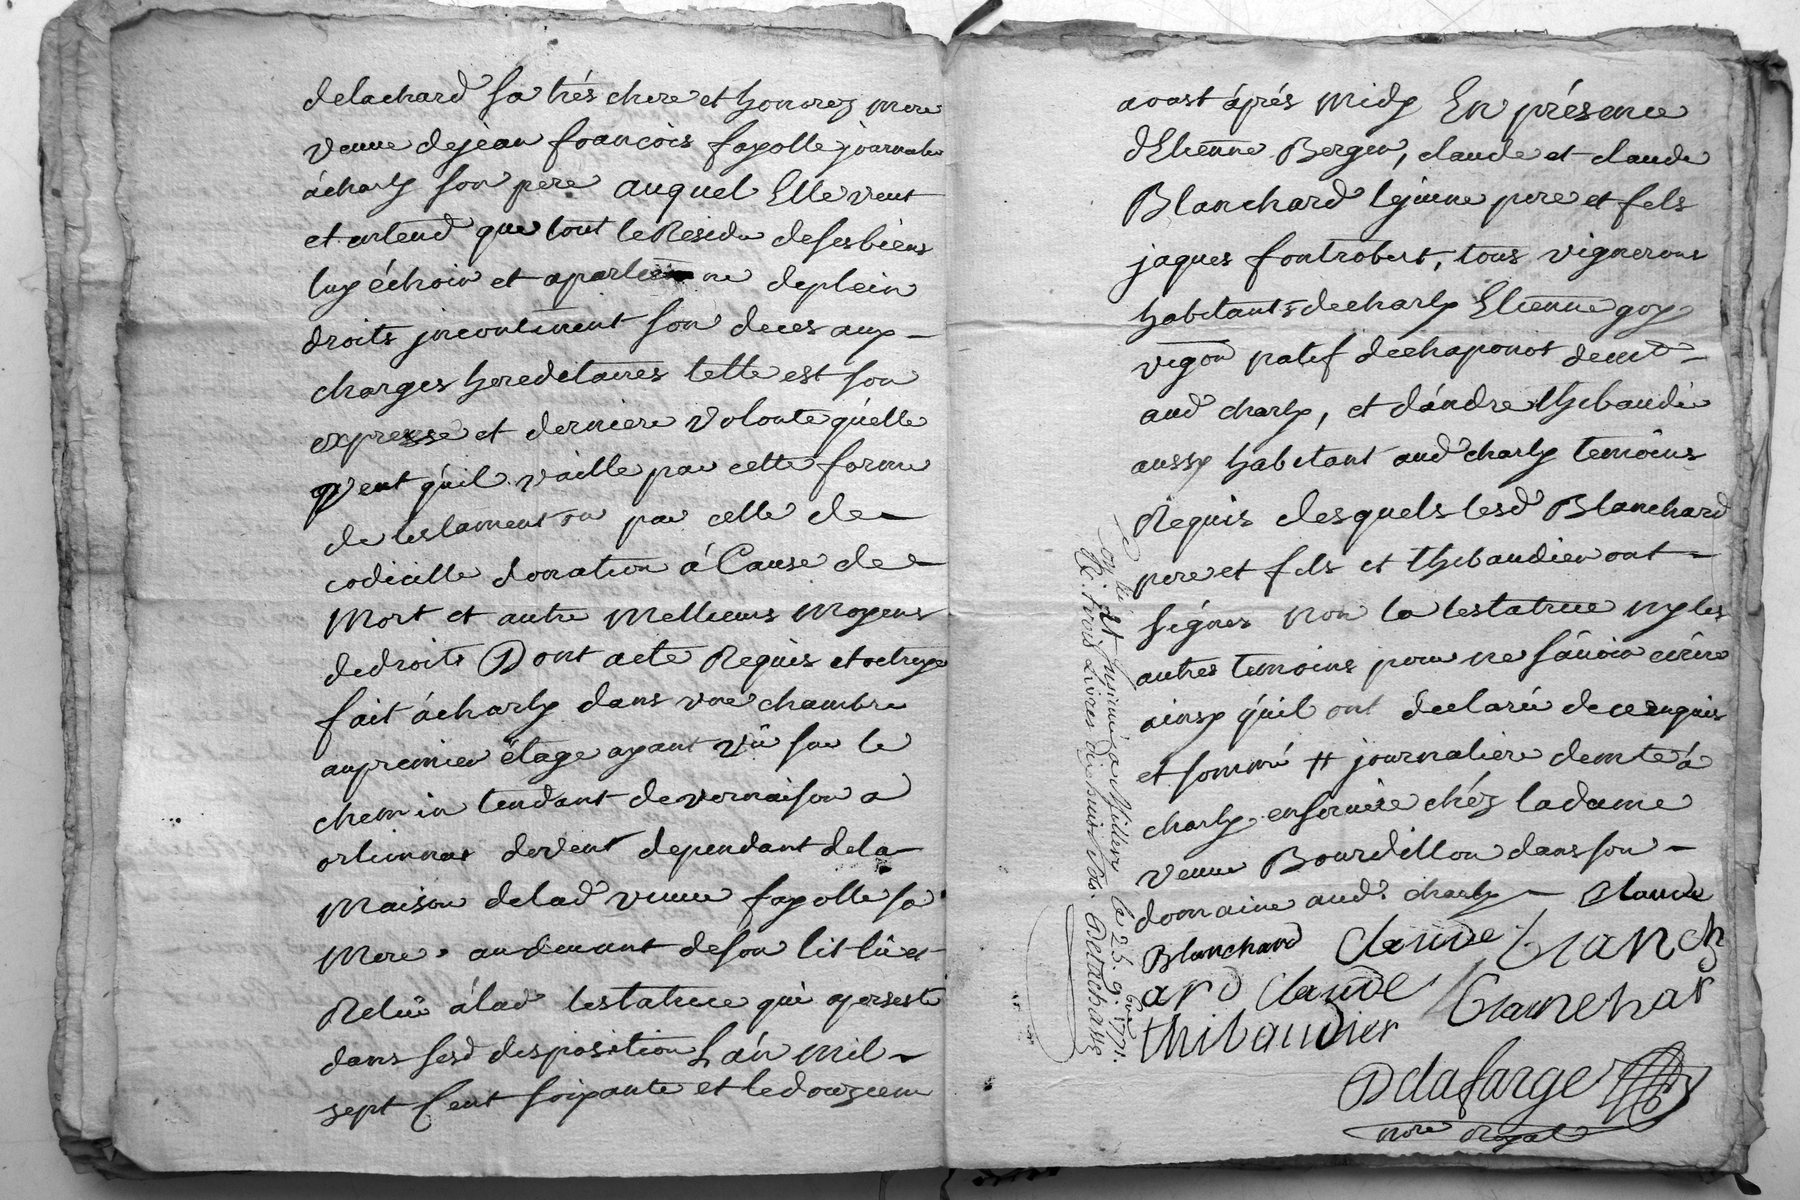 delachard sa trés chere et honorez mere
veuve dejean françois fayolle journalie
ácharly son pere auquel Elle veut
et entend que tout le Residu desesbiens
luy échoir et apartienne deplein
droits jncontinent son deces aux
charges hereditaires telle est son
expresse et derniere volonte qúelle
veut qúil vaille par cette forme
de testament ou par celle de
codicille donation á Cause de
Mort et autre Mellieurs Moyens
dedroits Dont acte Requis etoctroye
fait ácharly dans vne chambre
aupremier étage ayant vüe sur le
chemin tendant devernaison a
orlienna devent dependant dela
Maison delad veuve fayolle sa
Mere. audevant deson lit lüet
Relüe álad testatrice qui apersesté
dans sesd desposition Lán mil
sept Cent soixante et ledouzieme
aoust áprés Midy En présence
dEtienne Berger, claude et claude
Blanchard lejeune pere et fels
jaques fontrobert, tous vignerons
habitants decharly Etienne goy
vigon natif dechaponot demt
aud charly, et dándre thibaudie
aussy habitant aud charly temoins
Requis desquels lesd Blanchard
pere et fels et thibaudier ont
ségnes non la testatrice nyles
autres temoins pour ne sávoir ecrire
ainsy qúil ont declarée de ce enquis
et sommé # journaliere demte á
charly. enfermée chéz ladame
veuve Bourdillon dans son
domaine aud. charly Claude
Blanchard claude blanch
ard claude blanchar
thibaudier
Delafarge
nore royal
Coll. et jnsinué a Millery le 25. 9bre 1771.
R. trois Livres dix huit sols. Detachasse